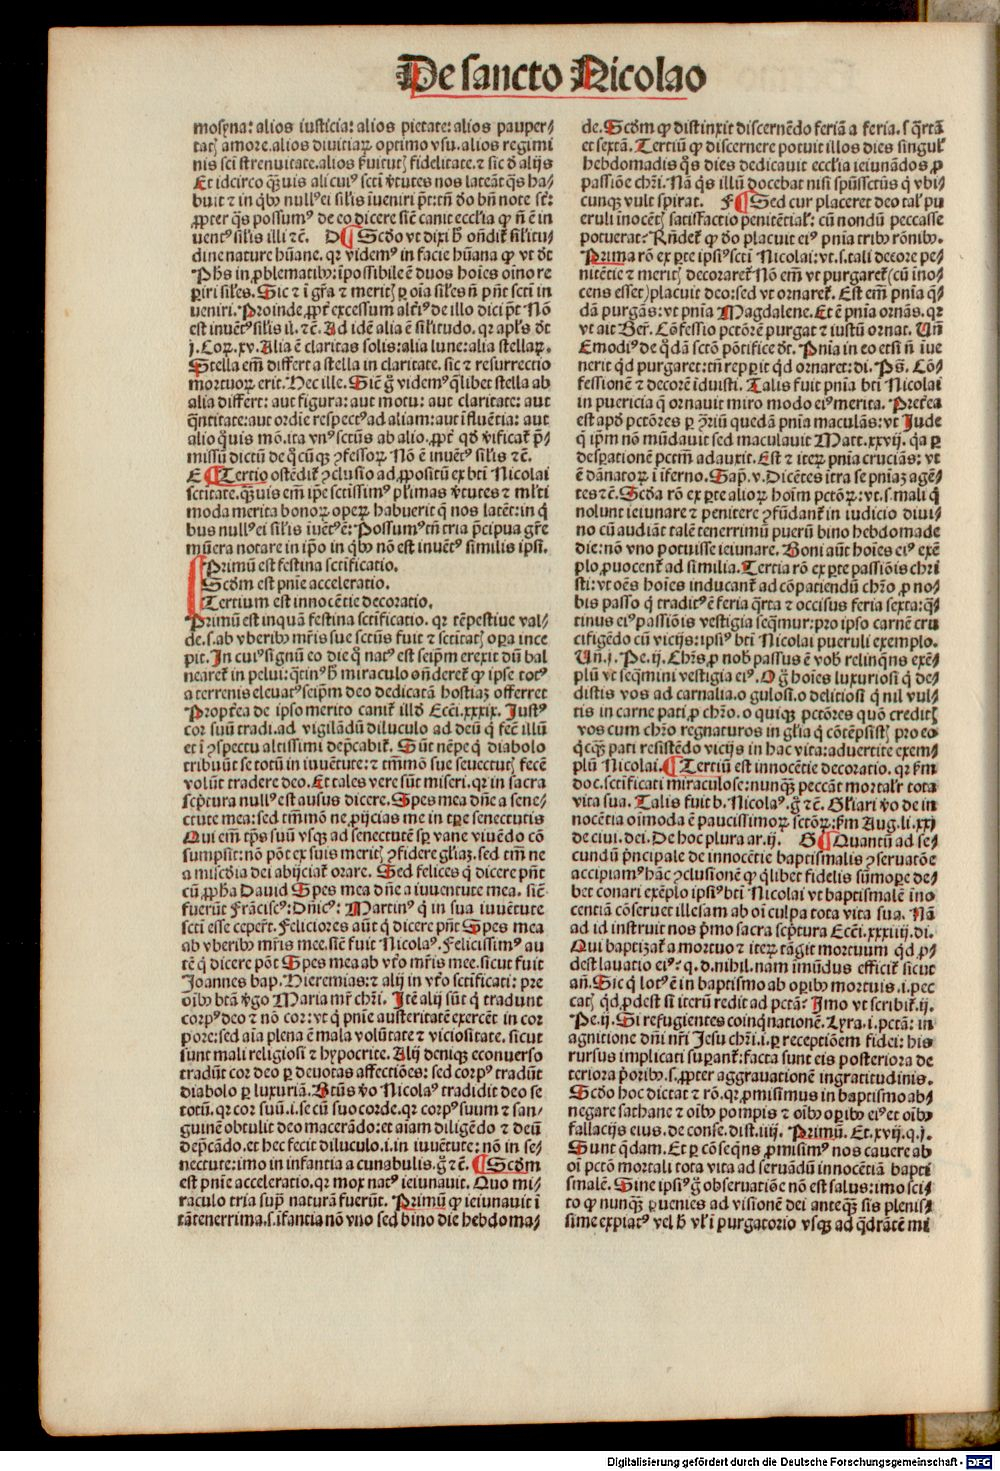 De sancto Nicolao
mosyna: alios iusticia: alios pietate: alios pauper⸗
tatꝭ amore. alios diuitiaꝝ optimo vsu. alios regimi
nis sci strenuitate. alios ẜuitutꝭ fidelitate. ⁊ sic ð alijs
Et idcirco q̃uis alicuiꝰ scti v̓tutes nos lateãt q̃s ha⸗
buit ⁊ in qͥbꝰ nullꝰ ei sil̓is ĩueniri
ꝓpter q̃s possumꝰ de eo dicere sicut̃ canit ecclia ꝙ nõ ẽ in
uentꝰ sil̓is illi ⁊c̃. D Scd̓o vt dixi h̓ oñdit̃ sil̓itu⸗
dine nature hũane. qꝛ videmꝰ in facie hũana ꝙ vt d̓t
Ph̓s in ꝓblematibꝰ: ĩpossibile ẽ duos hoĩes oĩno re
periri sil̓es. Sic ⁊ ĩ gr̃a ⁊ meritꝭ ꝑ oĩa sil̓es nõ pñt scti in
ueniri. Proinde ꝓpt̓ excessum alt̓iꝰ de illo dici pt̃ Nõ
est inuẽtꝰ sil̓is il̓. ⁊c̃. Ad idẽ alia ẽ sil̓itudo. qꝛ apl̓s d̓t
j. Coꝝ. xv. Alia ẽ claritas solis: alia lune: alia stellaꝝ.
Stella em̃ differt a stella in claritate. sic ⁊ resurrectio
mortuoꝝ erit. Hec ille. Sicut̃ g̊ videmꝰ q̃libet stella ab
alia differt: aut figura: aut motu: aut claritate: aut
q̃ntitate: aut ordĩe respectꝰ ad aliam: aut ĩfluẽtia: aut
alio quis mõ. ita vnꝰ sctũs ab alio. ꝓpt̓ qd̓ v̓ificat̃ p̃⸗
missũ dictũ de qͦcũqꝫ ꝯfessoꝝ. Nõ ẽ inuẽtꝰ sil̓is ⁊c̃.
E Tertio ostẽdit̃ ꝯclusio ad ꝓpositũ ex bti Nicolai
sctitate. q̃uis em̃ ip̃e sctissimꝰ pl̓imas v̓tutes ⁊ ml̓ti
moda merita bonoꝝ opeꝝ habuerit q̃ nos latẽt: in qͥ
bus nullꝰ ei sil̓is ĩuẽtꝰ ẽ: Possumꝰ tñ tria p̃cipua gr̃e
mũera notare in ip̃o in qͥbꝰ nõ est inuẽtꝰ similis ipsi.
Primũ est festina sctificatio.
Scd̓m est pñie acceleratio.
Tertium est innocẽtie decoratio.
Primũ est inquã festina sctificatio. qꝛ tẽpestiue val⸗
de. s. ab vberibꝰ mr̃is sue sctũs fuit ⁊ sctitatꝭ oꝑa ince
pit. In cuiꝰ signũ eo die qͦ natꝰ est seip̃m erexit dũ bal
nearet̃ in pelui: qͣtinꝰ h̓ miraculo oñderet̃ ꝙ ipse totꝰ
a terrenis eleuatꝰ seip̃m deo dedicatã hostiaꝫ offerret
Propt̓ea de ipso merito canit̃ illd̓ Ecc̃i. xxxix. Justꝰ
cor suũ tradi. ad vigilãdũ diluculo ad deũ q̃ fec̃ illũ
et ĩ ꝯspectu altissimi dep̃cabit̃. Sũt nẽpe q̃ diabolo
tribuũt se totũ in iuuẽtute: ⁊ tm̃mõ sue senectutꝭ fecẽ
volũt tradere deo. Et tales vere sũt miseri. qꝛ in sacra
scp̃tura nullꝰ est ausus dicere. Spes mea dñe a sene⸗
ctute mea: sed tm̃mõ ne ꝓijcias me in tp̃e senectutis
Qui em̃ tp̃s suũ vsqꝫ ad senectutẽ sꝑ vane viuẽdo cõ
sumpsit: nõ põt ex suis meritꝭ ꝯfidere gl̃iaꝫ. sed tm̃ ne
a mĩscd̓ia dei abijciat̃ orare. Sed felices q̃ dicere pñt
cũ ꝓpha Dauid Spes mea dñe a iuuentute mea. sicut̃
fuerũt Frãciscꝰ: Dñicꝰ: Martinꝰ q̃ in sua iuuẽtute
scti esse ceper̃t. Feliciores aũt q̃ dicere pñt Spes mea
ab vberibꝰ mr̃is mee. sicut̃ fuit Nicolaꝰ. Felicissimꝰ au
tẽ q̃ dicere põt Spes mea ab vt̓o mr̃is mee. sicut fuit
Joannes bap. Hieremias: ⁊ alij in vt̓o sctificati: pre
oĩbꝰ btã v̓go Maria mr̃ chr̃i. Itẽ alij sũt q̃ tradunt
corpꝰ deo ⁊ nõ cor: vt q̃ pñie austeritatẽ exercẽt in cor
pore: sed aĩa plena ẽ mala volũtate ⁊ viciositate. sicut
sunt mali religiosi ⁊ hypocrite. Alij deniqꝫ econuerso
tradũt cor deo ꝑ deuotas affectiões: sed corpꝰ tradũt
diabolo ꝑ luxuriã. Btũs v̓o Nicolaꝰ tradidit deo se
totũ. qꝛ cor suũ. i. se cũ suo corde. qꝛ corpꝰ suum ⁊ san⸗
guinẽ obtulit deo macerãdo: et aĩam diligẽdo ⁊ deũ
dep̃cãdo. et hec fecit diluculo. i. in iuuẽtute: nõ in se⸗
nectute: imo in infantia a cunabulis. g̊ ⁊c̃. Scd̓m
est pñie acceleratio. qꝛ mox natꝰ ieiunauit. Quo mi⸗
raculo tria supͣ naturã fuerũt. Primũ ꝙ ieiunauit ĩ
tã tenerrima. s. ĩfantia nõ vno sed bino die hebdoma⸗
de. Scd̓m ꝙ distinxit discernẽdo feriã a feria. s. qͣrtã
et sextã. Tertiũ ꝙ discernere potuit illos dies singul̓
hebdomadis q̃s dies dedicauit ecclia ieiunãdos ꝓ
passiõe chr̃i. Nã q̃s illũ docebat nisi sp̃ũssctũs q̃ vbi⸗
cunqꝫ vult spirat. F Sed cur placeret deo tal̓ pu
eruli inocẽtꝭ satisfactio penitẽtial̓: cũ nondũ peccasse
potuerat? Rñdet̃ ꝙ ð̓o placuit eiꝰ pñia tribꝰ rõnibꝰ.
Prima rõ ex ꝑte ipsiꝰ scti Nicolai: vt. s. tali decore pe⸗
nitẽtie ⁊ meritꝭ decoraret̃ Nõ em̃ vt purgaret̃ (cũ ino⸗
cens esset) placuit deo: sed vt ornaret̃. Est em̃ pñia q̃⸗
dã purgãs: vt pñia Magdalene. Et ẽ pñia ornãs. qꝛ
vt ait Ber̃. Cõfessio pctõrẽ purgat ⁊ iustũ ornat. Uñ
Emodiꝰ de qͦdã sctõ põtifice d̓t. Pñia in eo etsi nõ ĩue
nerit qd̓ purgaret: tñ repperit qd̓ ornaret: di. Ps̃. Cõ⸗
fessionẽ ⁊ decorẽ ĩduisti. Talis fuit pñia bti Nicolai
in puericia q̃ ornauit miro modo eiꝰ merita. Preterea
est apd̓ pctõres ꝑ ꝯ̓riũ quedã pñia maculãs: vt Jude
q̃ ip̃m nõ mũdauit sed maculauit Matt. xxvij. qꝛ ꝑ
desꝑationẽ pctm̃ adauxit. Est ⁊ iteꝝ pñia cruciãs: vt
ẽ dãnatoꝝ ĩ ĩferno. Sap̃. v. Dicẽtes ĩtra se pñiaꝫ agẽ⸗
tes ⁊c̃. Scd̓a rõ ex ꝑte alioꝝ hoĩm pctõꝝ: vt. s. mali q̃
nolunt ieiunare ⁊ penitere ꝯfũdant̃ in iudicio diui⸗
no cũ audiãt talẽ tenerrimũ puerũ bino hebdomade
die: nõ vno potuisse ieiunare. Boni aũt hoĩes eiꝰ exẽ
plo ꝓuocent̃ ad similia. Tertia rõ ex ꝑte passiõis chri
sti: vt oẽs hoĩes inducant̃ ad cõpatiendũ chr̃o ꝓ no⸗
bis passo q̃ traditꝰ ẽ feria qͣrta ⁊ occisus feria sexta: qͣ⸗
tinus eiꝰ passiõis vestigia seqͣmur: pro ipso carnẽ cru
cifigẽdo cũ vicijs: ipsiꝰ bti Nicolai pueruli exemplo.
Uñ. j. Pe. ij. Chr̃s ꝓ nobꝭ passus ẽ vobꝭ relinqͣns exẽ⸗
plũ vt seqͣmini vestigia eiꝰ. O g̊ hoĩes luxuriosi q̃ de⸗
distis vos ad carnalia. o gulosi. o delitiosi q̃ nil vul⸗
tis in carne pati ꝓ chr̃o. o quiqꝫ pctõres quõ creditꝭ
vos cum chr̃o regnaturos in gl̃ia q̃ cõtẽpsistꝭ pro eo
qͥcqͣꝫ pati resistẽdo vicijs in hac vita: aduertite exem⸗
plũ Nicolai. Tertiũ est innocẽtie decoratio. qꝛ ẜm
doc. sctificati miraculose: nunqͣꝫ peccãt mortal̓r tota
vita sua. Talis fuit b. Nicolaꝰ. g̊ ⁊c̃. Gl̃iari v̓o de in
nocẽtia oĩmoda ẽ paucissimoꝝ sctõꝝ: ẜm Aug. li. xxj
de ciui. dei. De hoc plura ar. ij. G Quantũ ad se⸗
cundũ p̃ncipale de innocẽtie baptismalis ꝯseruatõe
accipiamꝰ hãc ꝯclusionẽ ꝙ q̃libet fidelis sũmoꝑe de⸗
bet conari exẽplo ipsiꝰ bti Nicolai vt baptismalẽ ino
centiã cõseruet illesam ab oĩ culpa tota vita sua. Nã
ad id instruit nos p̃mo sacra scp̃tura Ecc̃i. xxxiiij. di.
Qui baptizat̃ a mortuo ⁊ iteꝝ tãgit mortuum qd̓ ꝓ⸗
dest lauatio eiꝰ? q. d. nihil. nam ĩmũdus efficit̃ sicut
añ. Sic q̃ lotꝰ ẽ in baptismo ab oꝑibꝰ mortuis. i. pec
catꝭ qd̓ ꝓdest si iterũ redit ad pctã? Imo vt scribit̃. ij.
Pe. ij. Si refugientes coinqͥnationẽ. Lyra. i. pctã: in
agnitione dñi nr̃i Jesu chr̃i. i. ꝑ receptiõem fidei: his
rursus implicati suꝑant̃: facta sunt eis posteriora de
teriora p̃oribꝰ. s. ꝓpter aggrauationẽ ingratitudinis.
Scd̓o hoc dictat ⁊ rõ. qꝛ ꝓmisimus in baptismo ab⸗
negare sathane ⁊ oĩbꝰ pompis ⁊ oĩbꝰ oꝑibꝰ eiꝰ et oĩbꝰ
fallacijs eius. de conse. dist. iiij. Primũ. Et. xvij. q. j.
Sunt qͥdam. Et ꝑ cõseqñs ꝓmisimꝰ nos cauere ab
oĩ pctõ mortali tota vita ad seruãdũ innocẽtiã bapti
smalẽ. Sine ipsiꝰ g̊ obseruatiõe nõ est salus: imo sci⸗
to ꝙ nunqͣꝫ ꝑuenies ad visionẽ dei anteqͣꝫ sis plenis⸗
sime expiatꝰ vel h̓ vl̓ ĩ purgatorio vsqꝫ ad qͣdrãtẽ mi
Digitalisierung gefördert durch die Deutsche Forschungsgemeinschaft - DFG